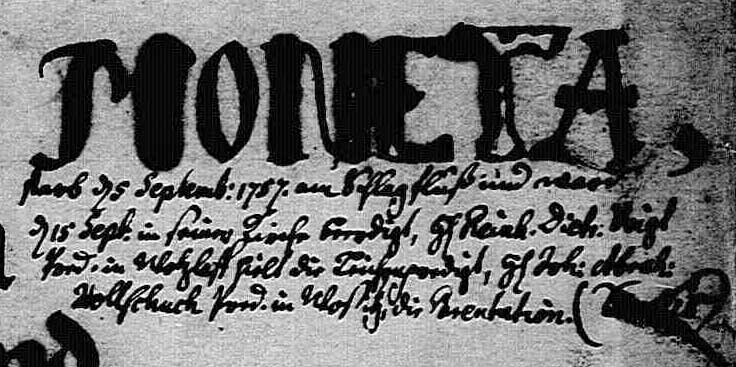 MONETA,
starb d 5 Septemb: 1757. am Schlagfluß und ward
d 15 Sept. in seiner Kirche beerdigt, H Reinh. Dietr. Voigt
Pred. in Wotzlaff hielt die Leichenpredigt, H Joh:
Wollschack Pred. in Wossitz, die Parentation. (